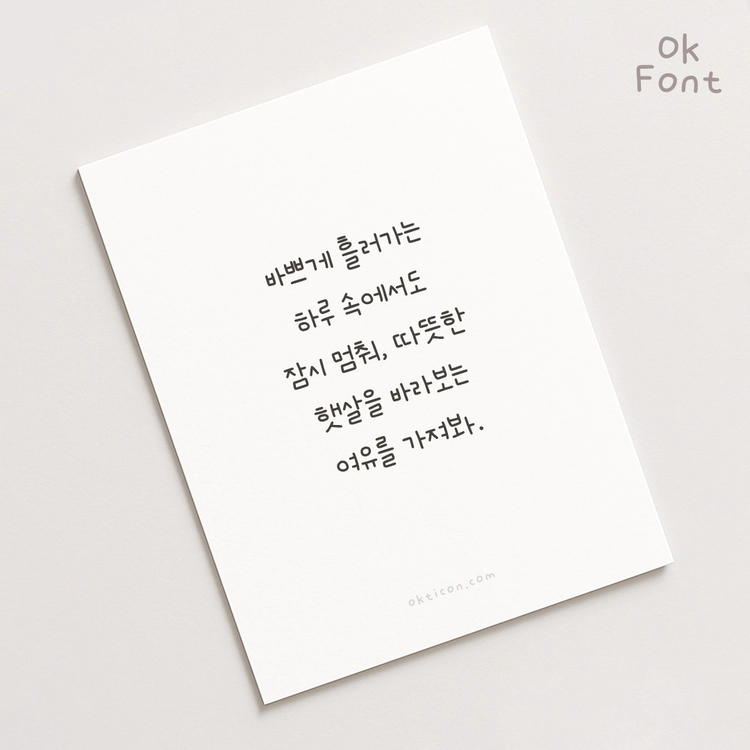 Ok
Font
바쁘게 흘러가는
하루 속에서도
잠시 멈춰, 따뜻한
햇살을 바라보는
여유를 가져봐.
okticon.com